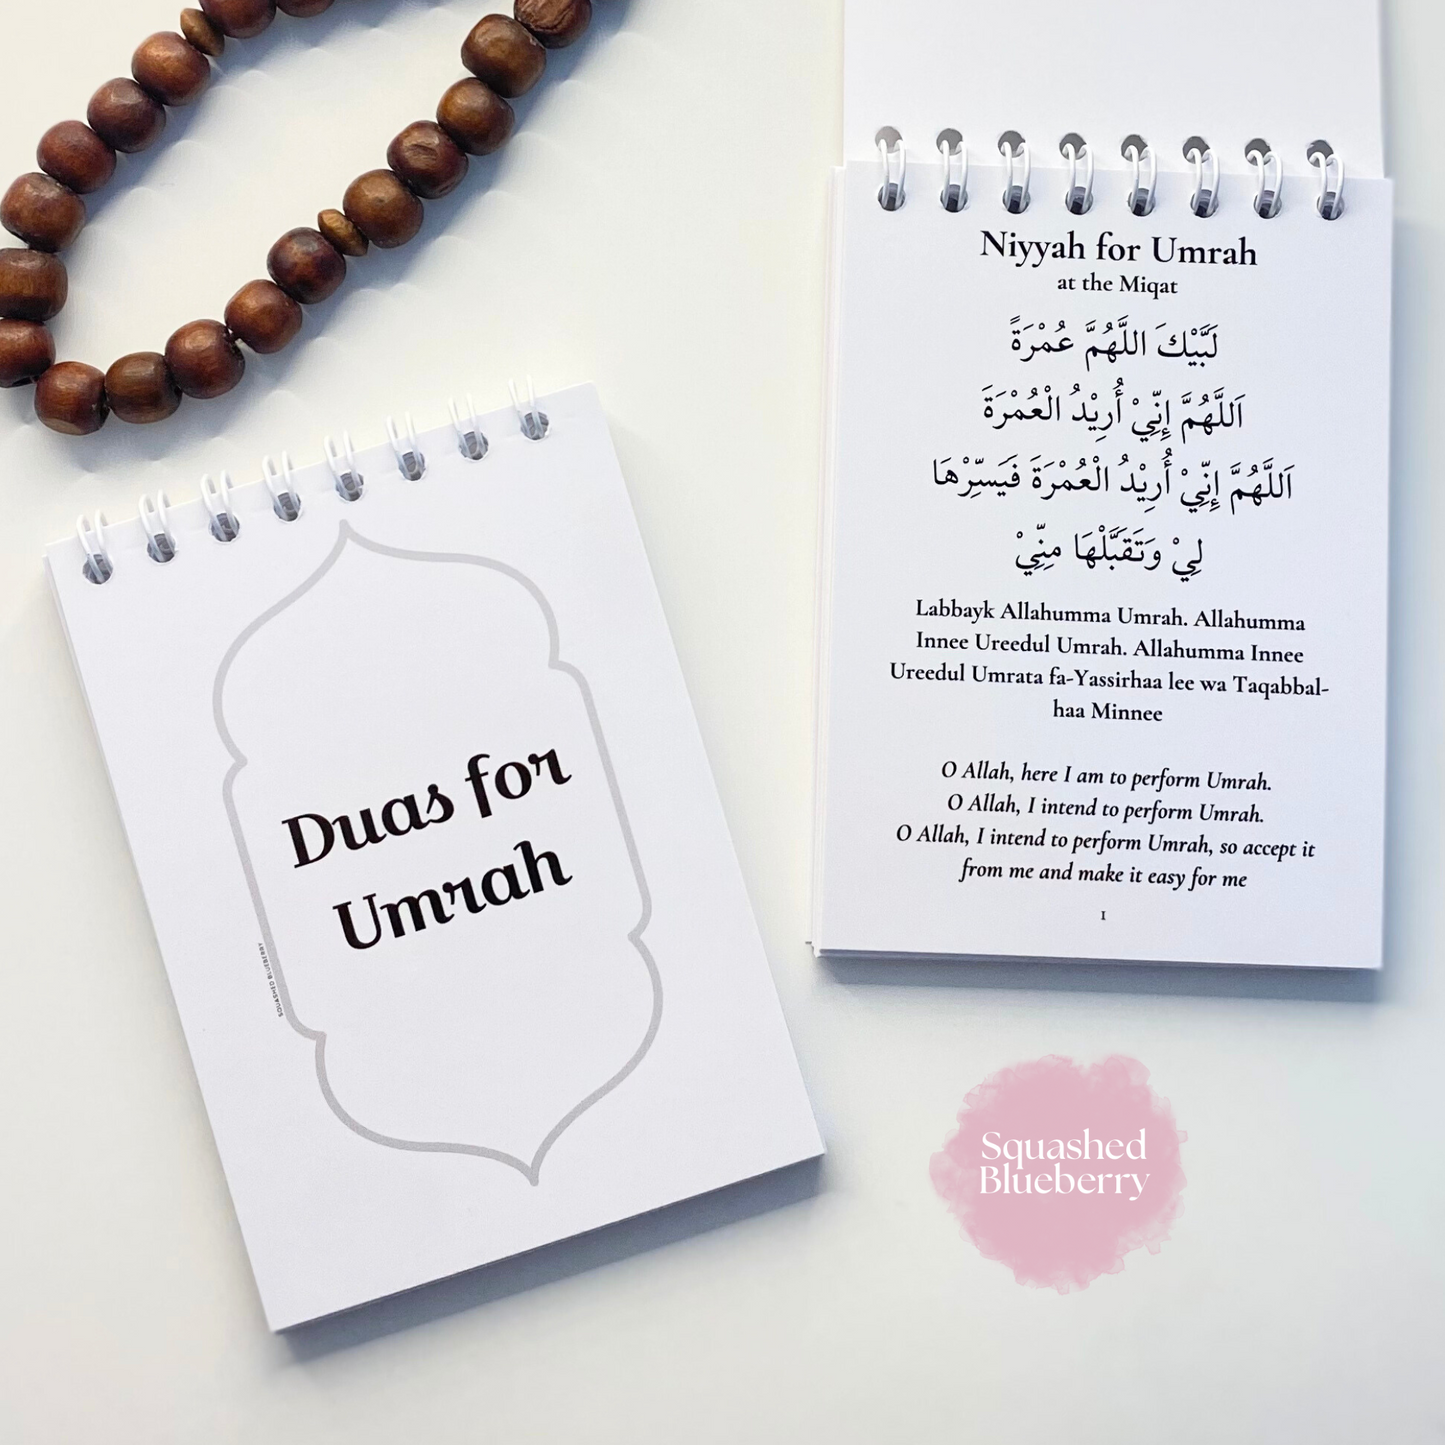 Duas for
Umrah
SQUASHED BLUEBERRY
Niyyah for Umrah
at the Miqat
لَبَّيْكَ اللَّهُمَّ عُمْرَةً
اَللَّهُمَّ إِنِّيْ أُرِيْدُ الْعُمْرَةَ
اَللَّهُمَّ إِنِّيْ أُرِيْدُ الْعُمْرَةَ فَيَسِّرْهَا
لِيْ وَتَقَبَّلْهَا مِنِّيْ
Labbayk Allahumma Umrah. Allahumma
Innee Ureedul Umrah. Allahumma Innee
Ureedul Umrata fa-Yassirhaa lee wa Taqabbal-
haa Minnee
O Allah, here I am to perform Umrah.
O Allah, I intend to perform Umrah.
O Allah, I intend to perform Umrah, so accept it
from me and make it easy for me
1
Squashed
Blueberry